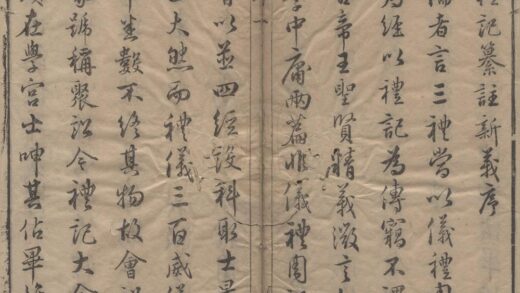 記纂註新義序
儒者言三禮當以儀禮周
為經以禮記為傳竊不謂
帝王聖賢精義微言
學中庸兩篇非儀禮周
以並四經設科取士
大然而禮儀三百威儀
數不終其物故會
號稱聚訟今禮記大全
在學宮士呻其佔畢